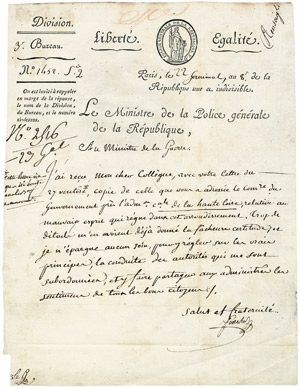 Division.
3e Bureau.
Nº. 1452. S. 2
Liberté.
Egalité.
Paris, le 22 Germinal, an 8e de la
République une et indivisible.
On est invité à rappeler
en marge de la réponse,
le nom de la Division,
du Bureau, et le numéro
ci-dessus.
Le Ministre de la Police générale
de la République,
Au Ministre de la Guerre.
J'ai reçu mon cher Collègue, avec votre lettre du
27 ventôse, copie de celle que vous a adressé le
Gouvernement par l'adm. de la haute loire, relative au
mauvais esprit qui règne dans cet arrondissement. Trop de
détails m'en avaient déjà donné la fâcheuse certitude, et
je n'épargne aucun soin, pour régler sur les vrais
principes, la conduite des autorités qui me sont
subordonnées, et y faire partager aux administrés les
sentimens de tous les bons citoyens.
Salut et fraternité